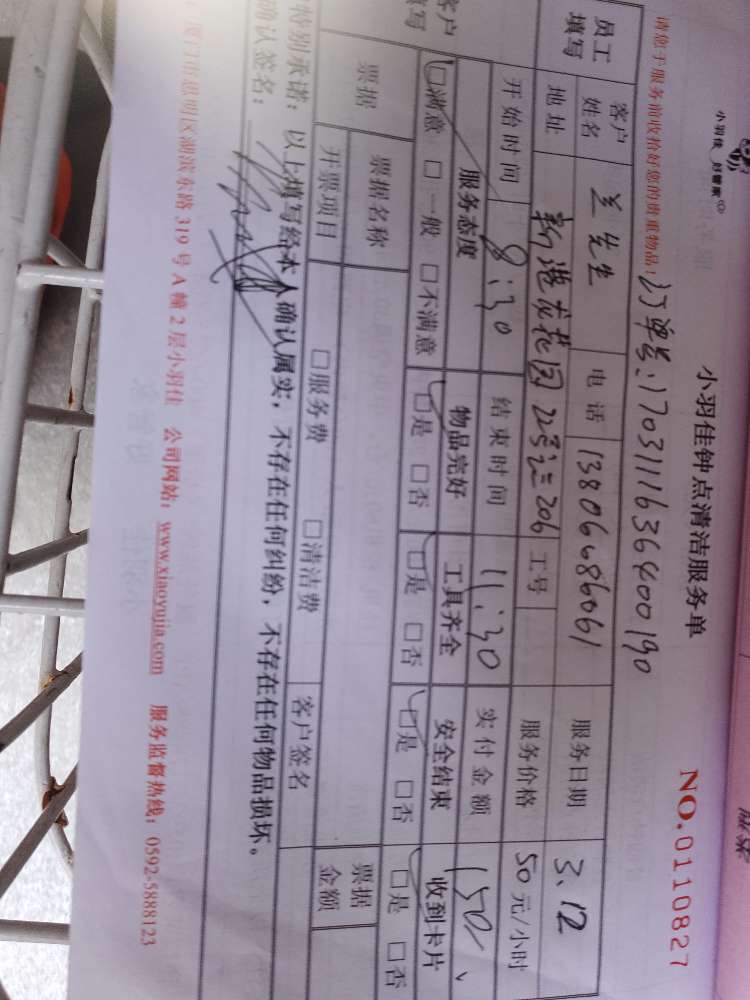 小羽佳 好管家
小羽佳钟点清洁服务单
NO.0110827
请您于服务前收拾好您的贵重物品!
订单号:170311116364００190
员工填写
客户姓名 兰先生 电话 13806086061 服务日期 3.12
地址 新港花园 25之三206 工号 服务价格 50元/小时
开始时间 8:30 结束时间 11:30 实付金额 150/
服务态度 物品完好 工具齐全 安全结束 收到卡片
□满意 □一般 □不满意 □是 □否 □是 □否 □是 □否 □是 □否
票据 票据名称 票据金额
开票项目 □服务费 □清洁费 客户签名
特别承诺:以上填写经本人确认属实,不存在任何纠纷,不存在任何物品损坏。
确认签名:
厦门市思明区湖滨东路319号A幢2层小羽佳 公司网站:www.xiaoyujia.com 服务监督热线:0592-5888123